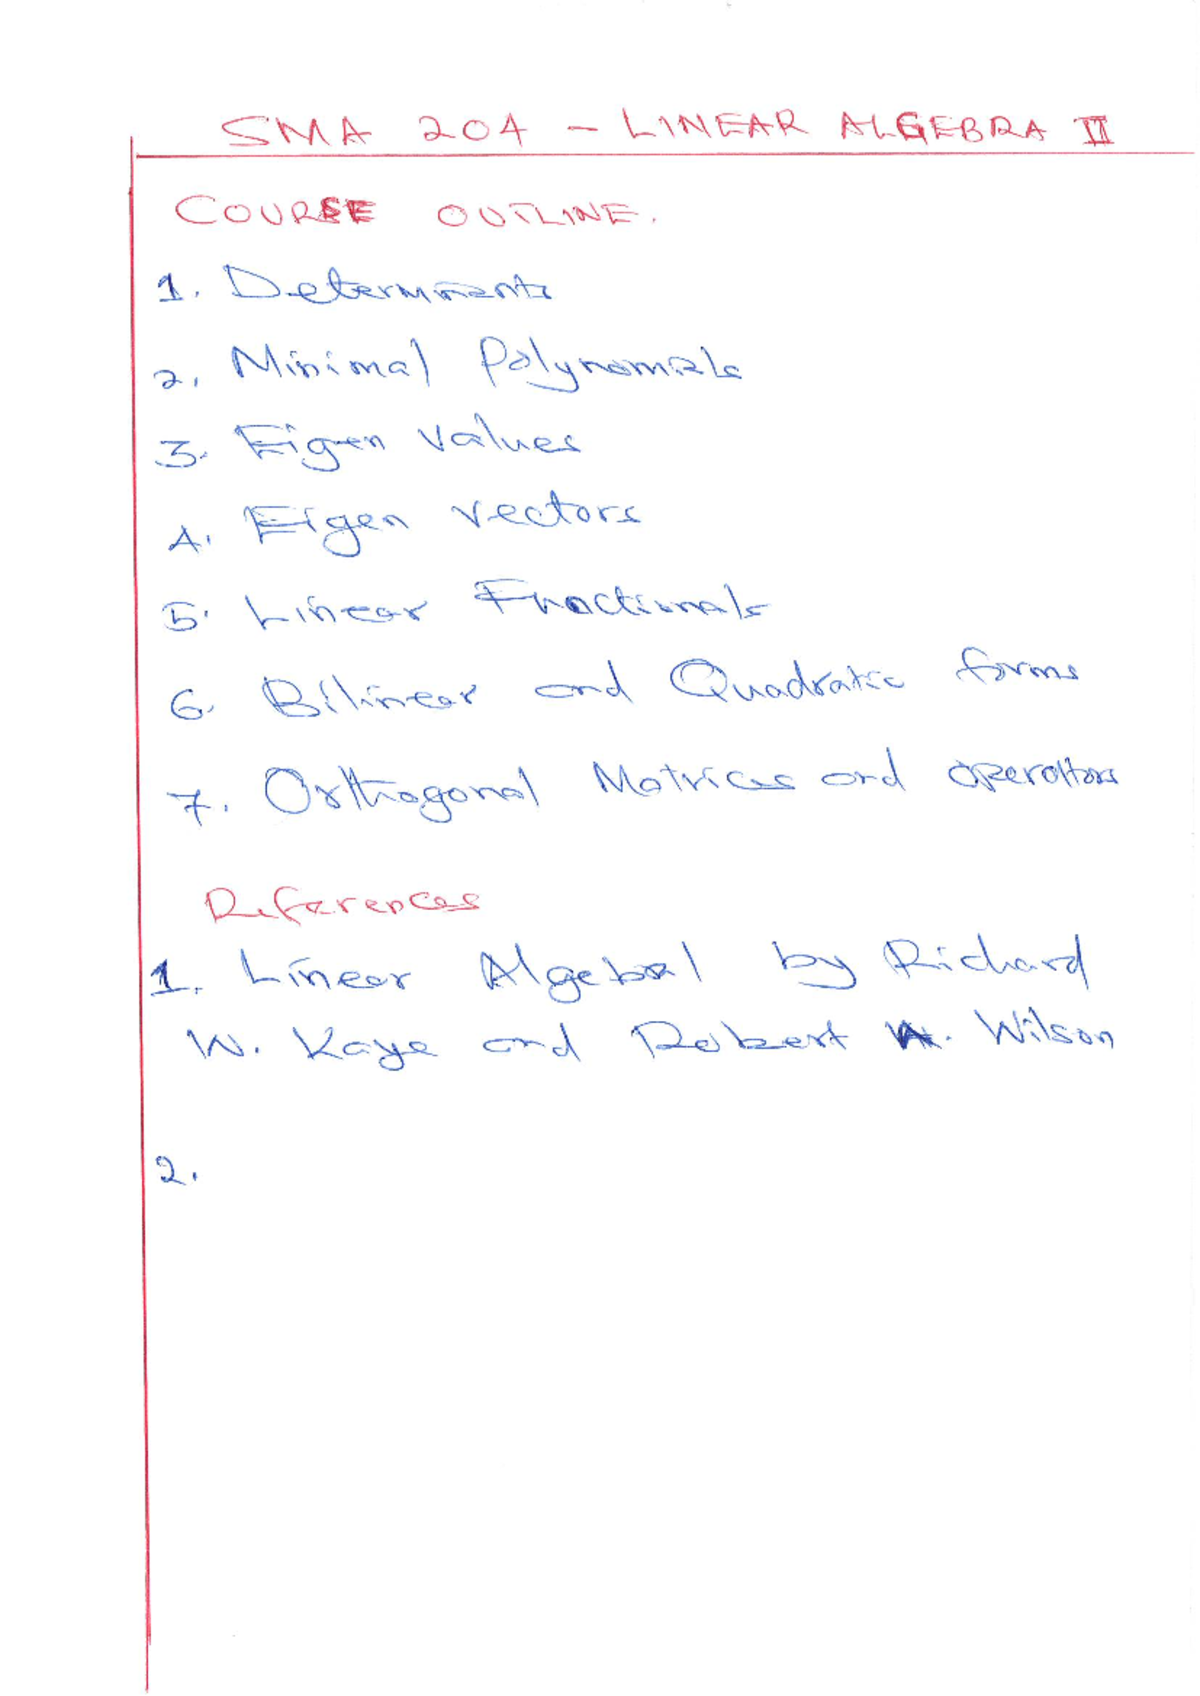 SMA 204 - LINEAR ALGEBRA II
COURSE OUTLINE.
1. Determinants
2. Minimal Polynomials
3. Eigen values
4. Eigen vectors
5. Linear Functionals
6. Bilinear and Quadratic forms
7. Orthogonal Matrices and operators
References
1. Linear Algebra by Richard
W. Kaye and Robert A. Wilson
2.